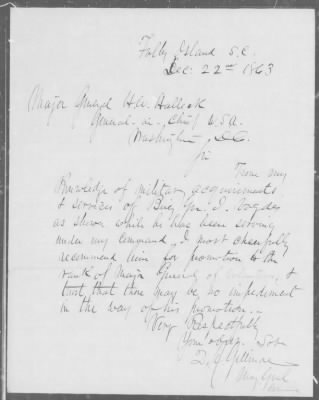 Folly Island S.C.
Dec. 22nd 1863
Major General H.W. Halleck
General-in-Chief U.S.A.
Washington D.C.
Sir
From my
Knowledge of military acquirements
& services of Brig. Gen. I. Vogdes
as shown while he has been serving
under my command, I most cheerfully
recommend him for promotion to the
rank of Major General of Volunteers, &
trust that there may be no impediment
in the way of his promotion.
Very Respectfully
Your obdy. Svt
Q. A. Gillmore
Maj Genl